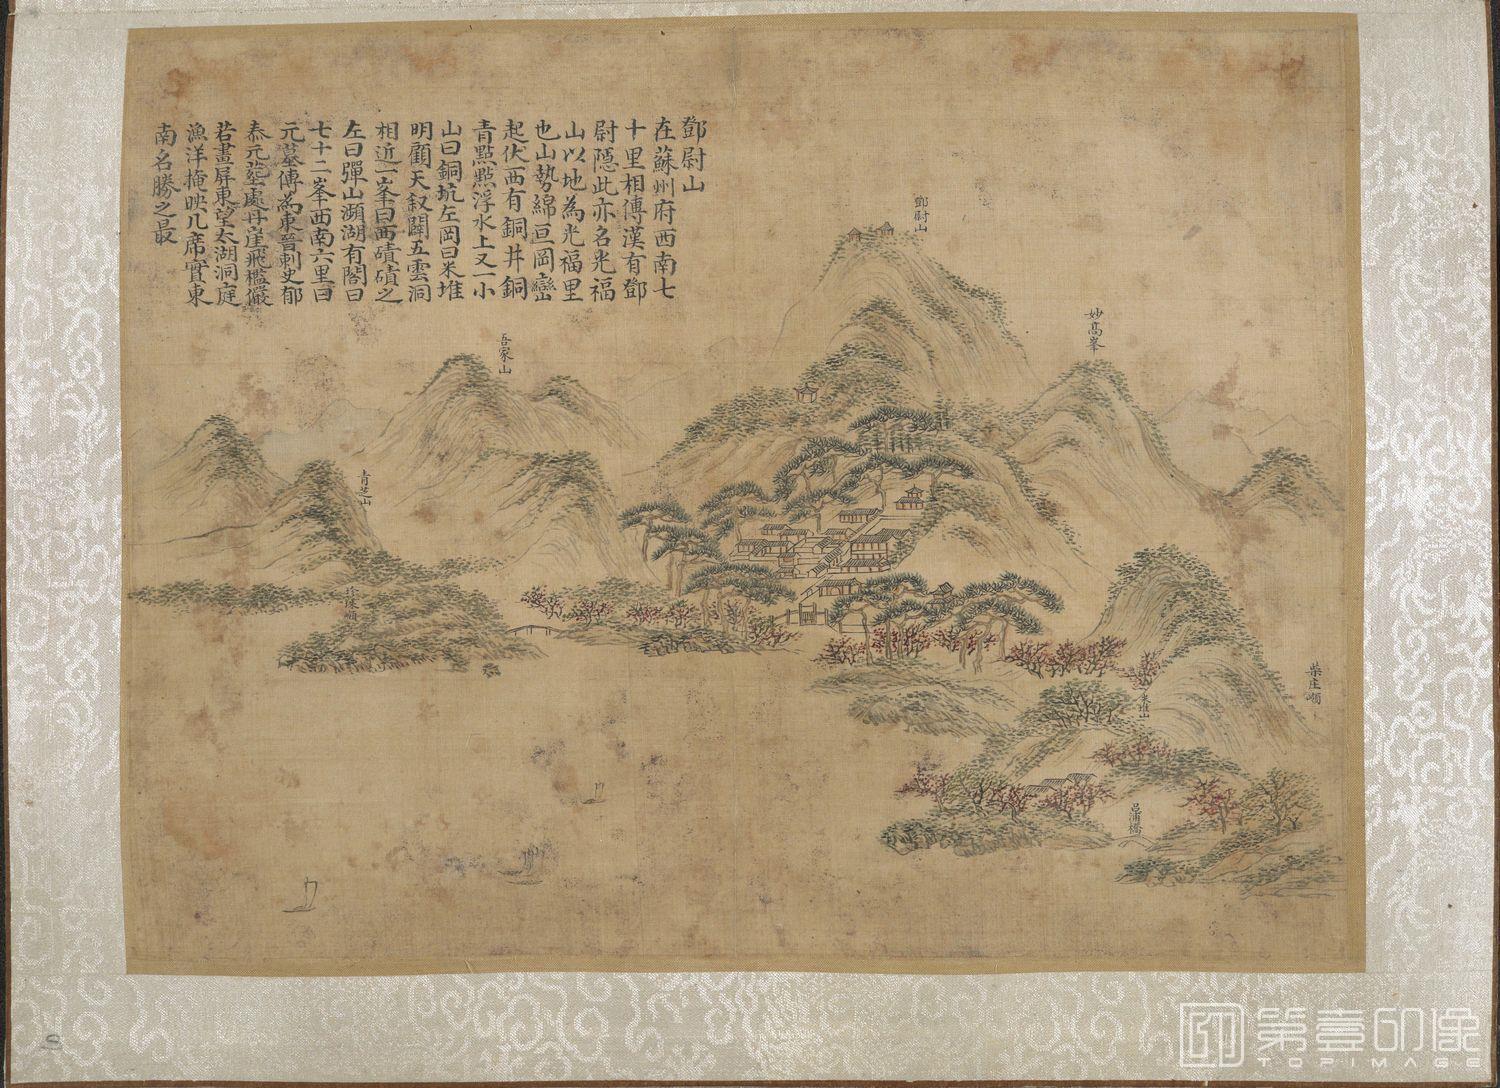 鄧尉山
在蘇州府西南七
十里相傳漢有鄧
尉隱此亦名光福
山以地為光福里
也山勢綿亘岡巒
起伏西有銅井銅
青點點浮水上又一小
山曰銅坑左岡曰米堆
明顧天叙闢五雲洞
相近一峯曰西磧磧之
左曰彈山瀕湖有閣曰
七十二峯西南六里曰
元墓傳為東晉刺史郁
泰元塟處丹崖飛檻儼
若畫屏東望太湖洞庭
漁洋掩映几席實東
南名勝之最
鄧尉山
妙高峯
吾家山
青芝山
珍珠嶺
柴庄嶺
米堆山
菖蒲橋
第壹印像
TOPIMAGE